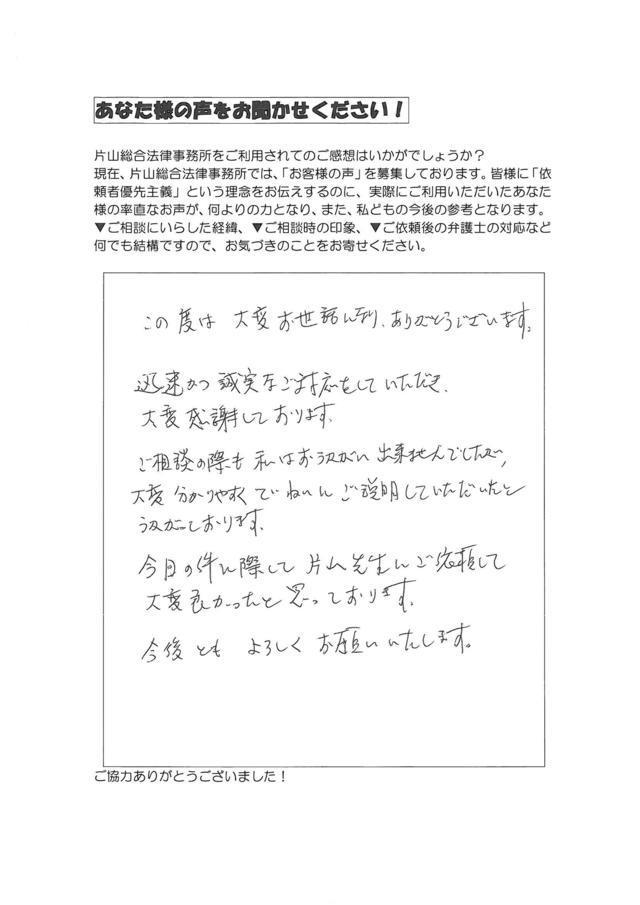 あなた様の声をお聞かせください！
片山総合法律事務所をご利用されてのご感想はいかがでしょうか？
現在、片山総合法律事務所では、「お客様の声」を募集しております。皆様に「依
頼者優先主義」という理念をお伝えするのに、実際にご利用いただいたあなた
様の率直なお声が、何よりの力となり、また、私どもの今後の参考となります。
▼ご相談にいらした経緯、▼ご相談時の印象、▼ご依頼後の弁護士の対応など
何でも結構ですので、お気づきのことをお寄せください。
この度は 大変お世話になり、ありがとうございます。
迅速かつ誠実なご対応をしていただき、
大変感謝しております。
ご相談の際も 私はおうかがい出来ませんでしたが、
大変 分かりやすく ていねいに ご説明していただいたと
うかがっております。
今回の件に際して 片山先生にご依頼して
大変良かったと 思っております。
今後とも よろしく お願いいたします。
ご協力ありがとうございました！